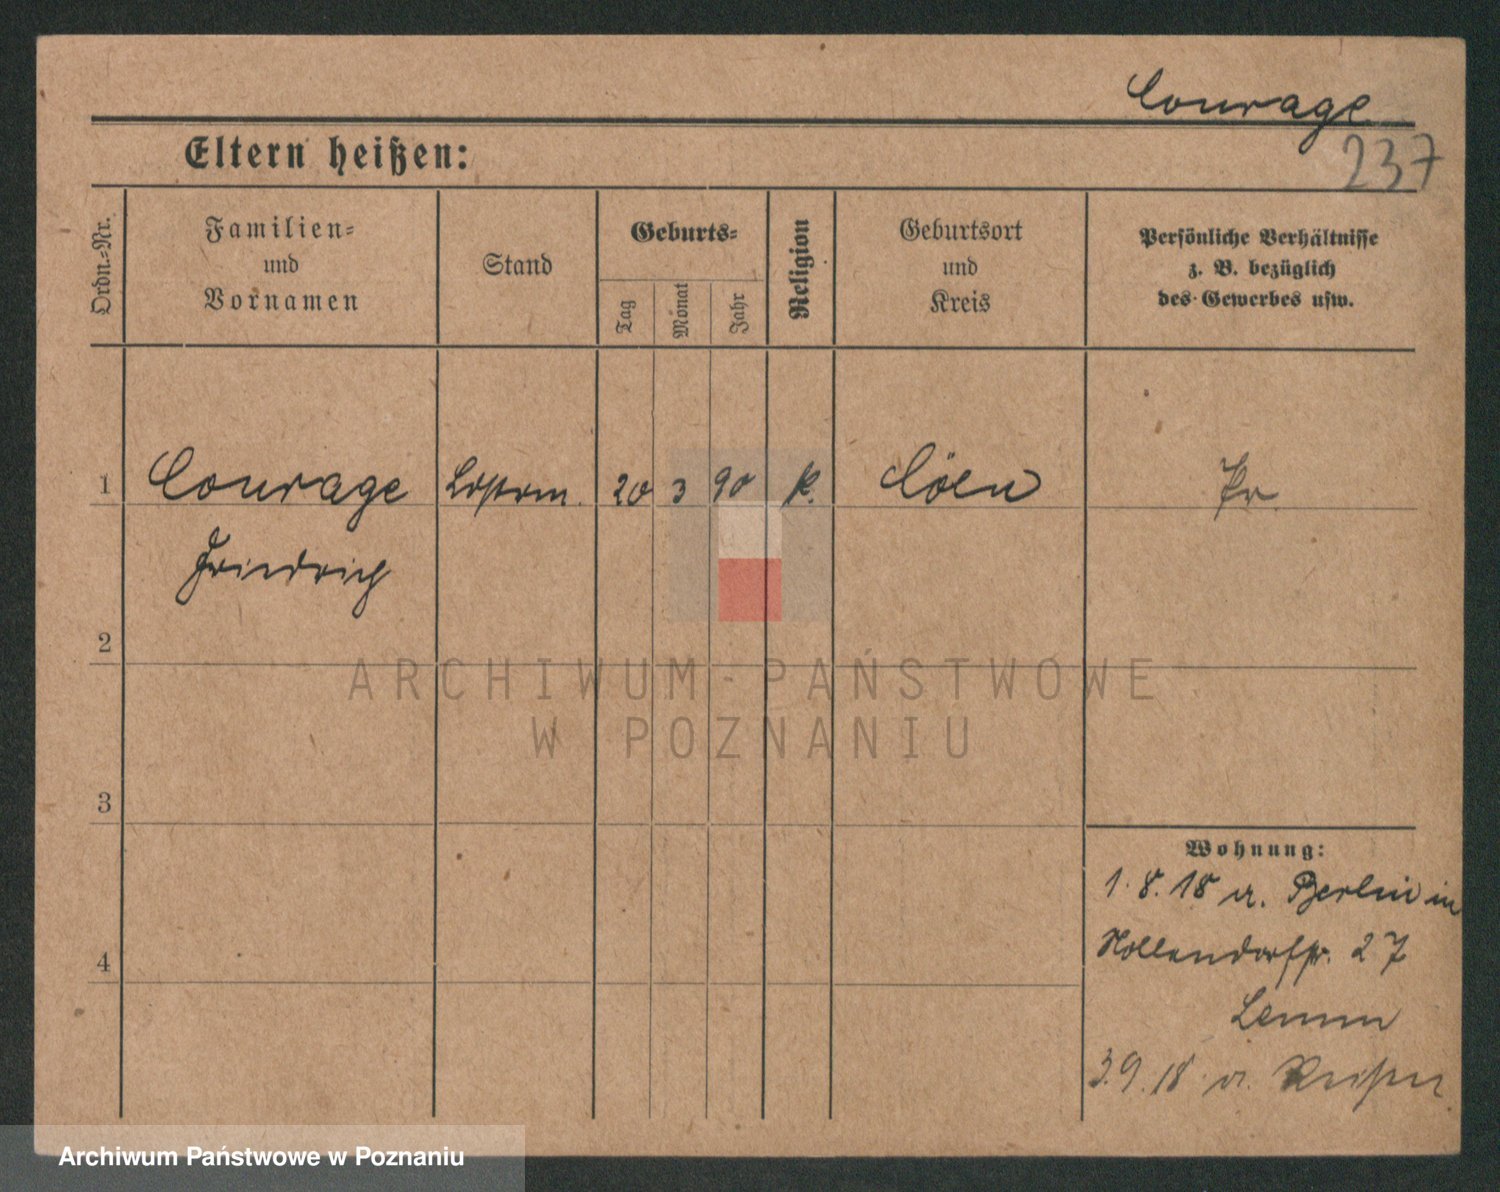 Courage
237
Eltern heißen:
Ordn.-Nr.
Familien-
und
Vornamen
Stand
Geburts-
Tag
Monat
Jahr
Religion
Geburtsort
und
Kreis
Persönliche Verhältnisse
z. B. bezüglich
des Gewerbes usw.
1 Courage 20 3 90 k. Cöln Pr.
Friedrich
2
ARCHIWUM PAŃSTWOWE
W POZNANIU
3
Wohnung:
1. 8. 18 a. Berlin in
27
4
3.9.18 a.
Archiwum Państwowe w Poznaniu